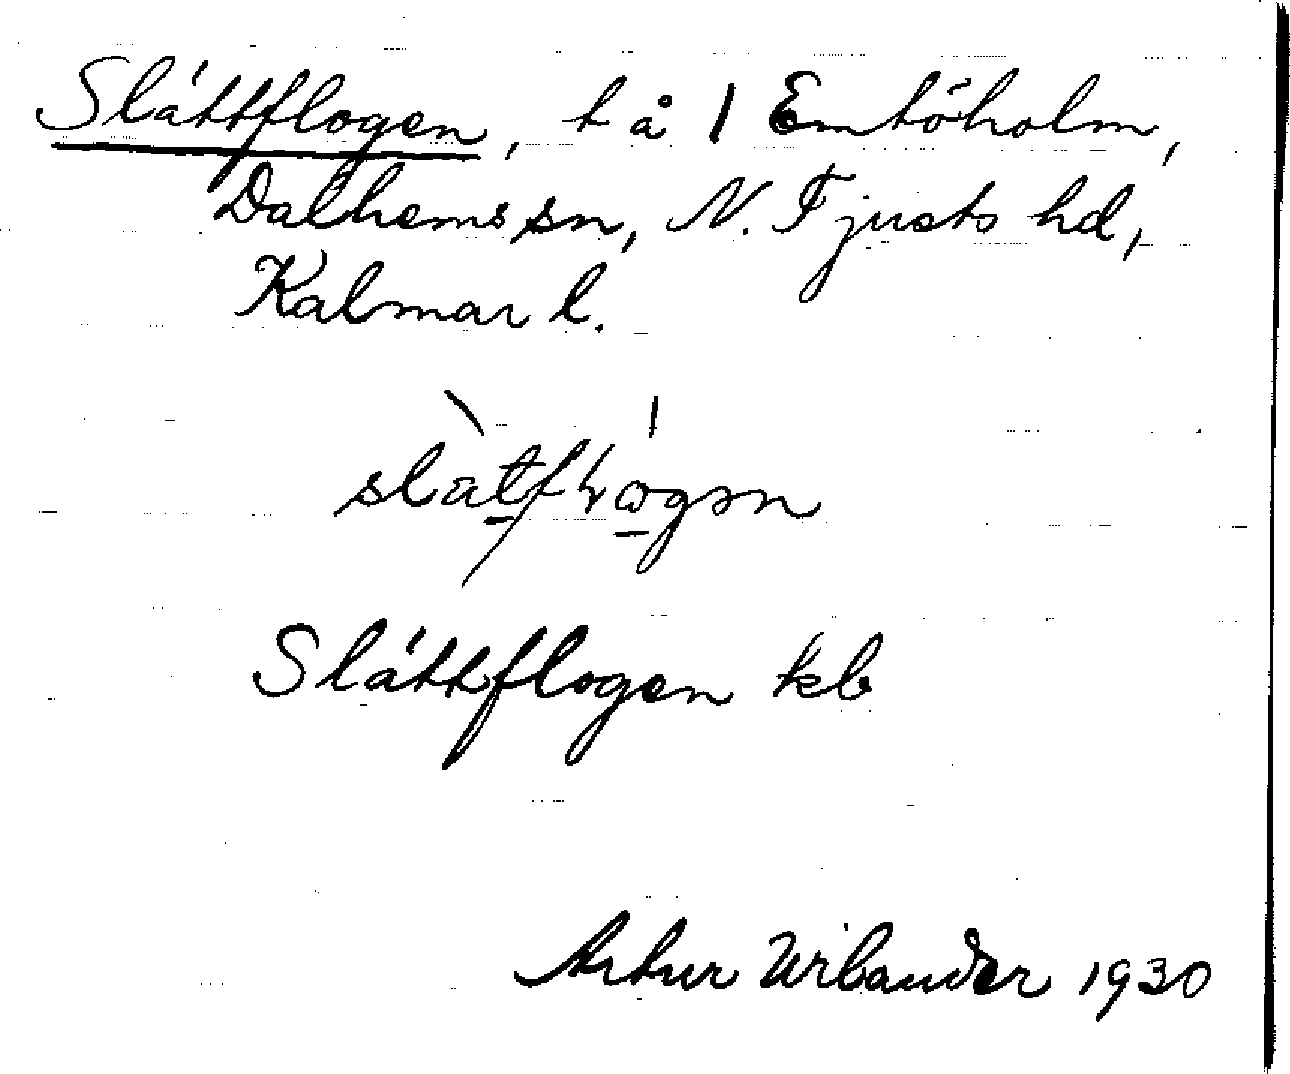 Slättflogen, t å 1 Emtöholm,
Dalhems sn, N. Tjusts hd,
Kalmar l.
Slättflogen kb
Artur Urbander 1930